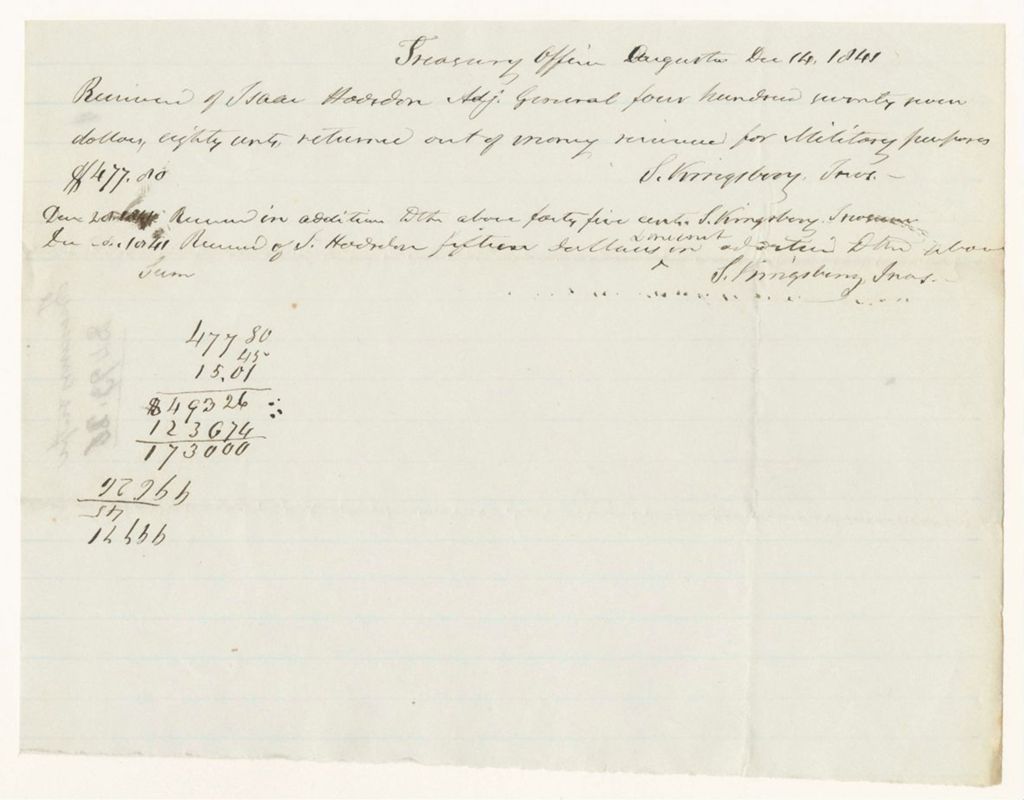 Treasury Office Augusta Dec 14, 1841
Received of Isaac Hodsdon Adj. General four hundred seventy seven
dollars, eighty cents, returned out of money received for Military purposes
$477.80 S. Kingsbury. Treas.
Received in addition to the above forty five cents. S. Kingsbury. Treasurer
Dec 1841 Received of I. Hodsdon fifteen dollars & one cent in addition to the above
Sum S. Kingsbury, Treas.
477 80
45
15.01
$493 26
1236 74
173000